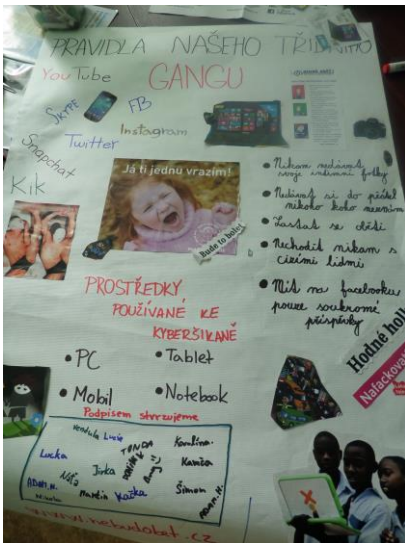 PRAVIDLA NAŠEHO TŘÍDNÍHO
GANGU
YouTube
SKYPE
FB
Instagram
Twitter
Snapchat
Kik
Já ti jednu vrazím!
Bude to bolet
• Nikam nedávat
svoje intimní fotky
• Nedávat si do přátel
nikoho koho neznám
• Zastat se dětí
• Nechodit nikam s
cizími lidmi
• Mít na facebooku
pouze soukromé
příspěvky
PROSTŘEDKY
POUŽÍVANÉ KE
KYBERŠIKANĚ
• PC
• Tablet
• Mobil
• Notebook
Hodné holk
Nafackovat
Podpisem stvrzujeme
Vendula Lucie
TONDA
Karolína
Lucka
Jirka
Kamča
Náťa
ADAM.M.
Martin Kačka
Šimon
ADAM.H.
Nikola
www.nebudobet.cz